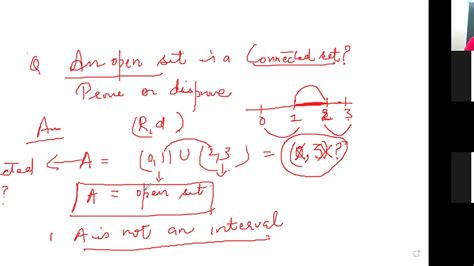 Q An open set is a Connected set?
Prove or disprove
Ans (R, d)
0 1 2 3
cted ← A = (0,1) ∪ (2,3) = (0, 3)?
?
A = open set
1 A is not an interval